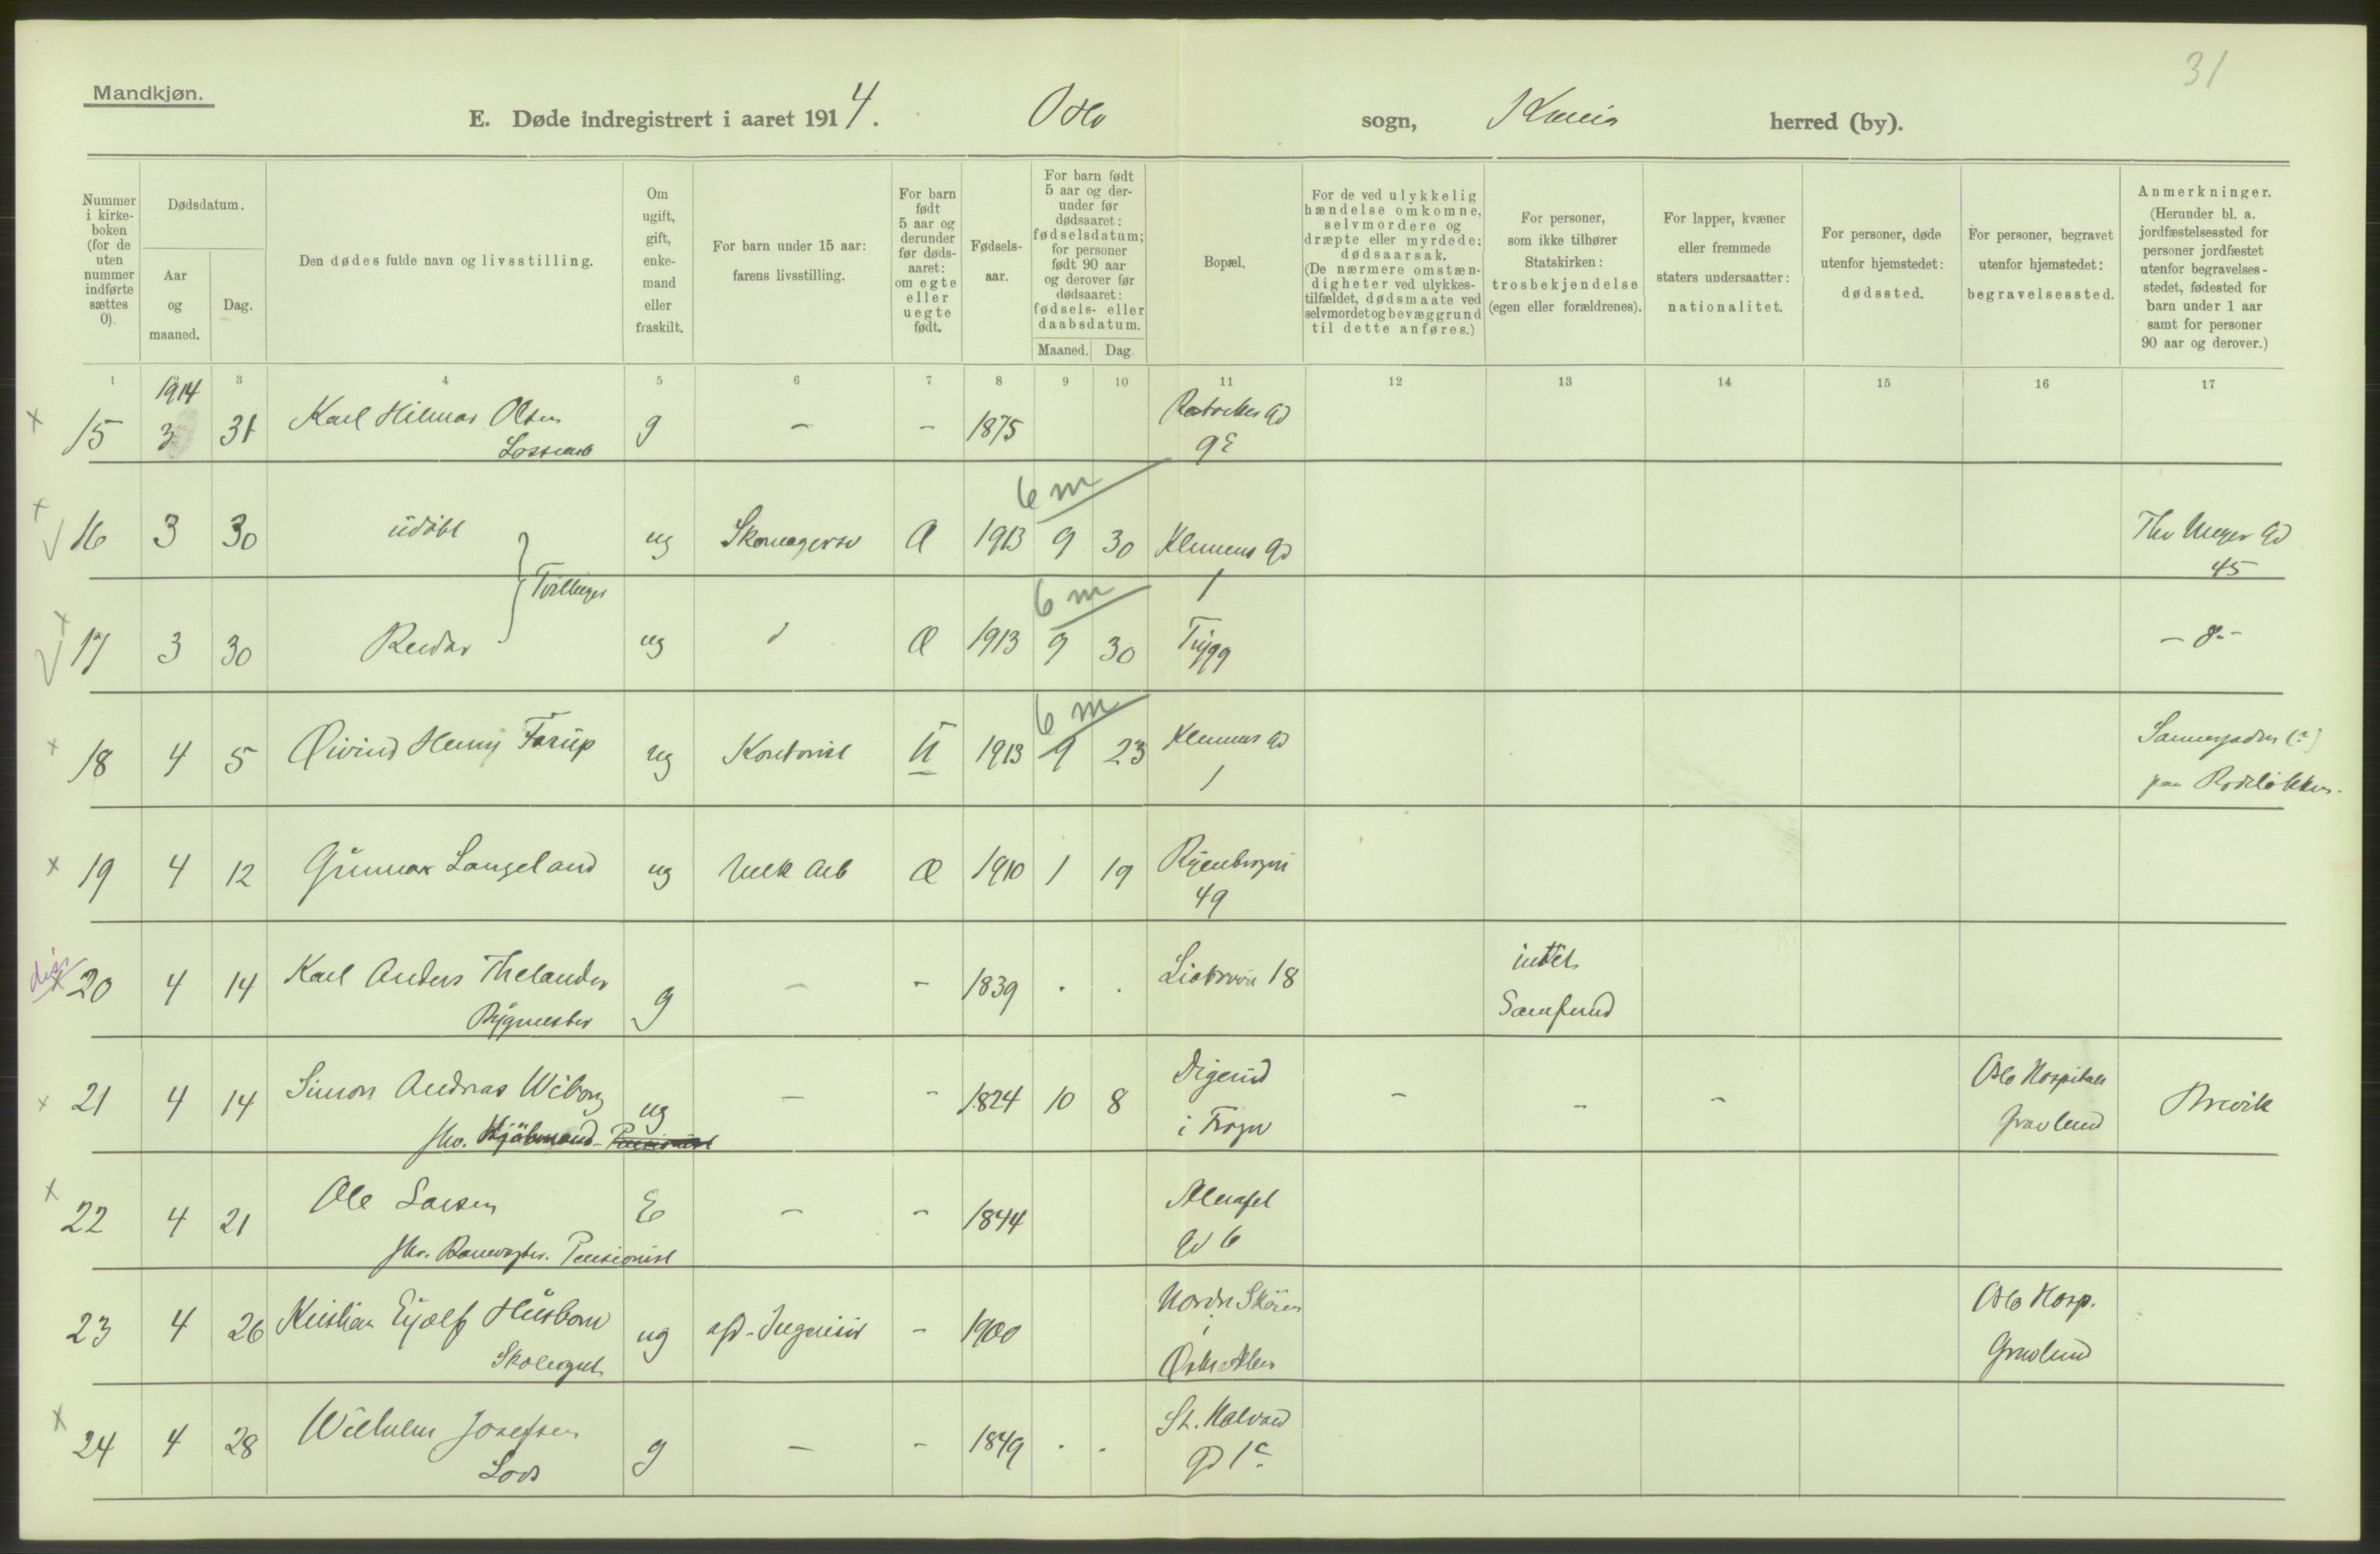 31
Mandkjøn.
E. Døde indregistrert i aaret 1914. Oslo sogn, Kr.ania herred (by).
Nummer i kirke- boken (for de uten nummer indførte sættes 0).
Dødsdatum.
Aar og maaned.
Dag.
Den dødes fulde navn og livsstilling.
Om ugift, gift, enke- mand eller fraskilt.
For barn under 15 aar: farens livsstilling.
For barn født 5 aar og derunder før døds- aaret: om egte eller uegte født.
Fødsels- aar.
For barn født 5 aar og der- under før dødsaaret: fødselsdatum; for personer født 90 aar og derover før dødsaaret: fødsels- eller daabsdatum.
Maaned. Dag.
Bopæl.
For de ved ulykkelig hændelse omkomne, selvmordere og dræpte eller myrdede: dødsaarsak. (De nærmere omstæn- digheter ved ulykkes- tilfældet, dødsmaate ved selvmordet og bevæggrund til dette anføres.)
For personer, som ikke tilhører Statskirken: trosbekjendelse (egen eller forældrenes).
For lapper, kvæner eller fremmede staters undersaatter: nationalitet.
For personer, døde utenfor hjemstedet: dødssted.
For personer, begravet utenfor hjemstedet: begravelsessted.
Anmerkninger. (Herunder bl. a. jordfæstelsessted for personer jordfæstet utenfor begravelses- stedet, fødested for barn under 1 aar samt for personer 90 aar og derover.)
1 3 4 5 6 7 8 9 10 11 12 13 14 15 16 17
1914
x 15 3 31 Karl Hilmar Olsen g – – 1875
Lossearb 9 E
6 m
x 16 3 30 udøbt ug Skomagersv Æ 1913 9 30 Klemens gd Thv Meyer gd
1 45
Tvillinger
6 m
x 17 3 30 Reidar ug Æ 1913 9 30 Trygg
6 m
x 18 4 5 Øivind Henry Farup ug Kontorist U 1913 9 23 Klemens gd Sannergaden (?)
1 paa Rodeløkken.
x 19 4 12 Gunnar Langeland ug Æ 1910 1 19 Ryenbergvn
49
diss x 20 4 14 Karl Anders Thelander g – – 1839 . . Liabrovn 18 intet
Bygmester Samfund
x 21 4 14 Simon Andreas Wiborg ug – – 1824 10 8 Digerud – – – Oslo Hospitals Brevik
fhv. Kjøbmand Pensionist i Frogn Gravlund
x 22 4 21 Ole Larsen E – – 1844
fhv. Banevogter. Pensionist gd 6
23 4 26 Kristian Eyolf Husborn ug afd. Ingeniør – 1900 Nordre Skøien Oslo Hosp.
Skolegut i Østre Aker Gravlund
x 24 4 28 Wilhelm Josefsen g – – 1849 . . St. Halvard
Lods gd 1 c